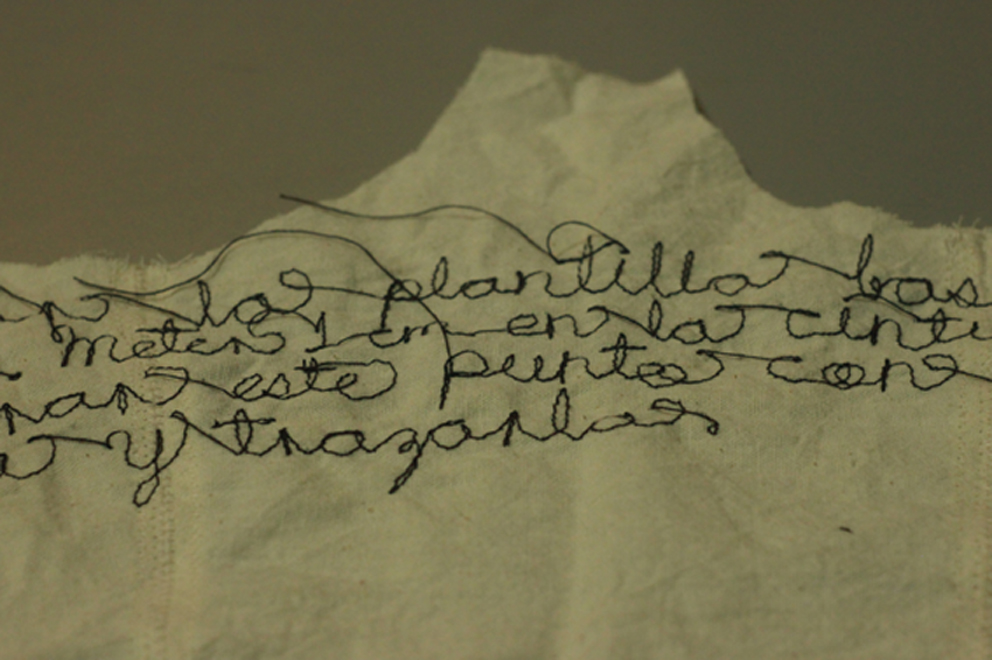 en la plantilla bas
meter 1 cm en la cintu
nar este punto con
a y trazarla